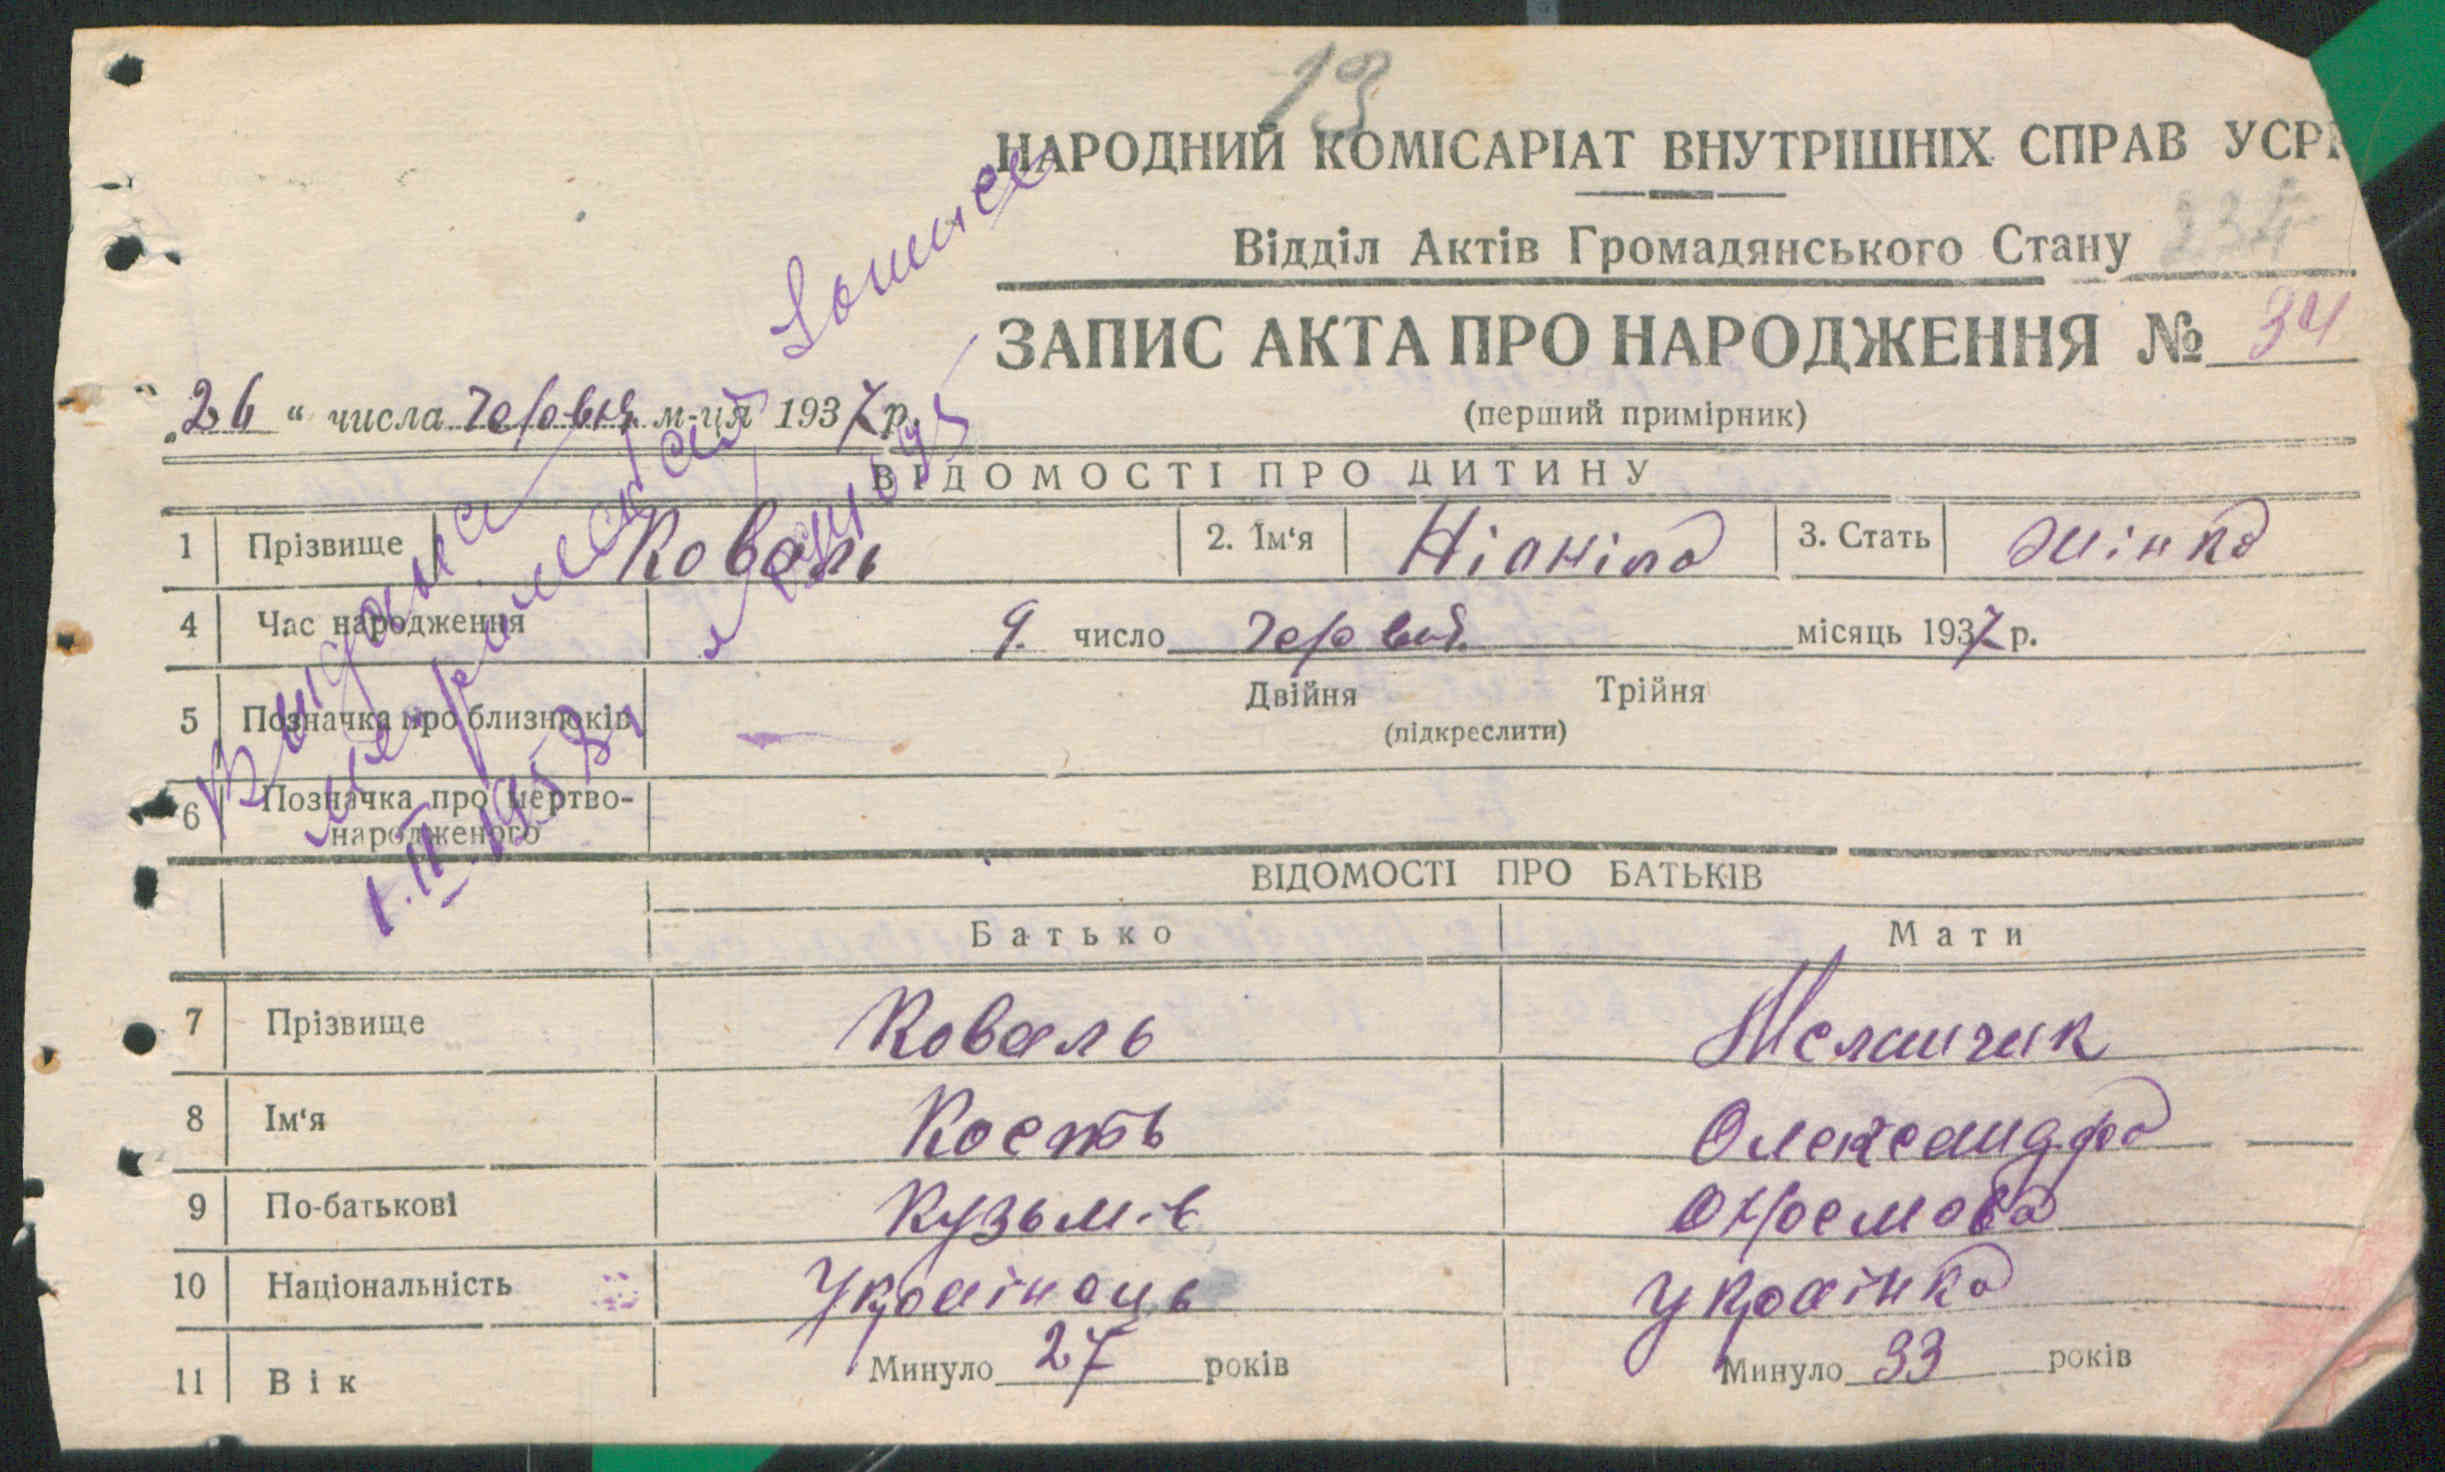 13
НАРОДНИЙ КОМІСАРІАТ ВНУТРІШНІХ СПРАВ УСРР
Відділ Актів Громадянського Стану 234
ЗАПИС АКТА ПРО НАРОДЖЕННЯ № 34
(перший примірник)
„26“ числа червня м-ця 1937 р.
ВІДОМОСТІ ПРО ДИТИНУ
1 Прізвище Коваль 2. Їм'я Ніоніла 3. Стать жінка
4 Час народження 9. число червня місяць 1937 р.
5 Позначка про близнюків Двійня Трійня
(підкреслити)
6 Позначка про мертво-
народженого
1.III-1953
ВІДОМОСТІ ПРО БАТЬКІВ
Батько Мати
7 Прізвище Коваль
8 Ім'я Кость Олександра
9 По-батькові Кузьмів
10 Національність Українець Українка
11 Вік Минуло 27 років Минуло 33 років